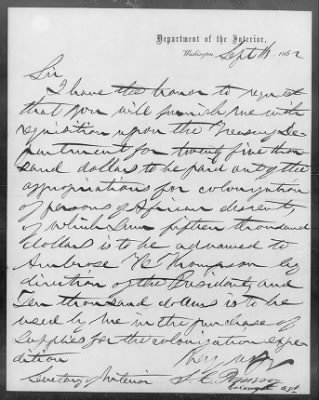 Department of the Interior,
Washington, Sept 1862
Sir
I have the honor to request
that you will furnish me with
requisition upon the Treasury De-
partment for twenty five thou
sand dollars to be paid out of the
appropriations for colonization
of persons of African descent,
of which sum fifteen thousand
dollars is to be advanced to
Ambrose W Thompson by
direction of the President, and
Ten thousand dollars is to be
used by me in the purchase of
Supplies for the colonization expe
dition
Secretary of Interior
S. C. Pomeroy
Colonizt agt